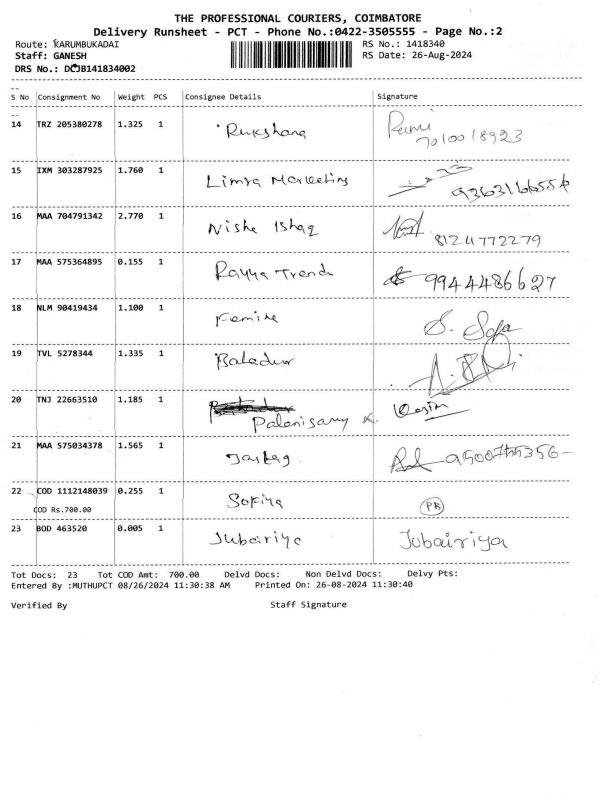 THE PROFESSIONAL COURIERS, COIMBATORE
Delivery Runsheet - PCT - Phone No.:0422-3505555 - Page No.:2
Route: KARUMBUKADAI RS No.: 1418340
Staff: GANESH RS Date: 26-Aug-2024
DRS No.: DOJB141834002
--
S No Consignment No Weight PCS Consignee Details Signature
--
14 TRZ 205380278 1.325 1 Rukshana
7010018923
15 IXM 303287925 1.760 1 Limra Marketing
16 MAA 704791342 2.770 1 Nisha Ishaq
8124772279
17 MAA 575364895 0.155 1 Rayya Trends 9944486627
18 NLM 90419434 1.100 1 S. Safa
19 TVL 5278344 1.335 1
20 TNJ 22663510 1.185 1
Palanisamy K.
21 MAA 575034378 1.565 1
22 COD 1112148039 0.255 1 Sofiya PR
COD Rs.700.00
23 BOD 463520 0.005 1 Jubairiya Jubairiya
Tot Docs: 23 Tot COD Amt: 700.00 Delvd Docs: Non Delvd Docs: Delvy Pts:
Entered By :MUTHUPCT 08/26/2024 11:30:38 AM Printed On: 26-08-2024 11:30:40
Verified By Staff Signature